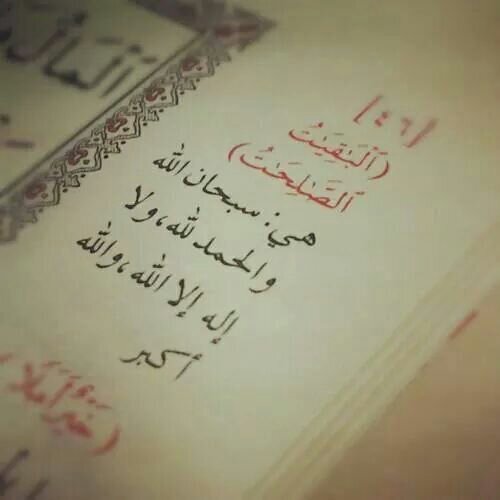 ٱلْمَالُ
[٤٦]
(ٱلْبَٰقِيَٰتُ
ٱلصَّٰلِحَٰتُ)
هي: سبحان الله
والحمد لله، ولا
إله إلا الله، والله
أكبر
(خَيْرٌ أَمَلًا)